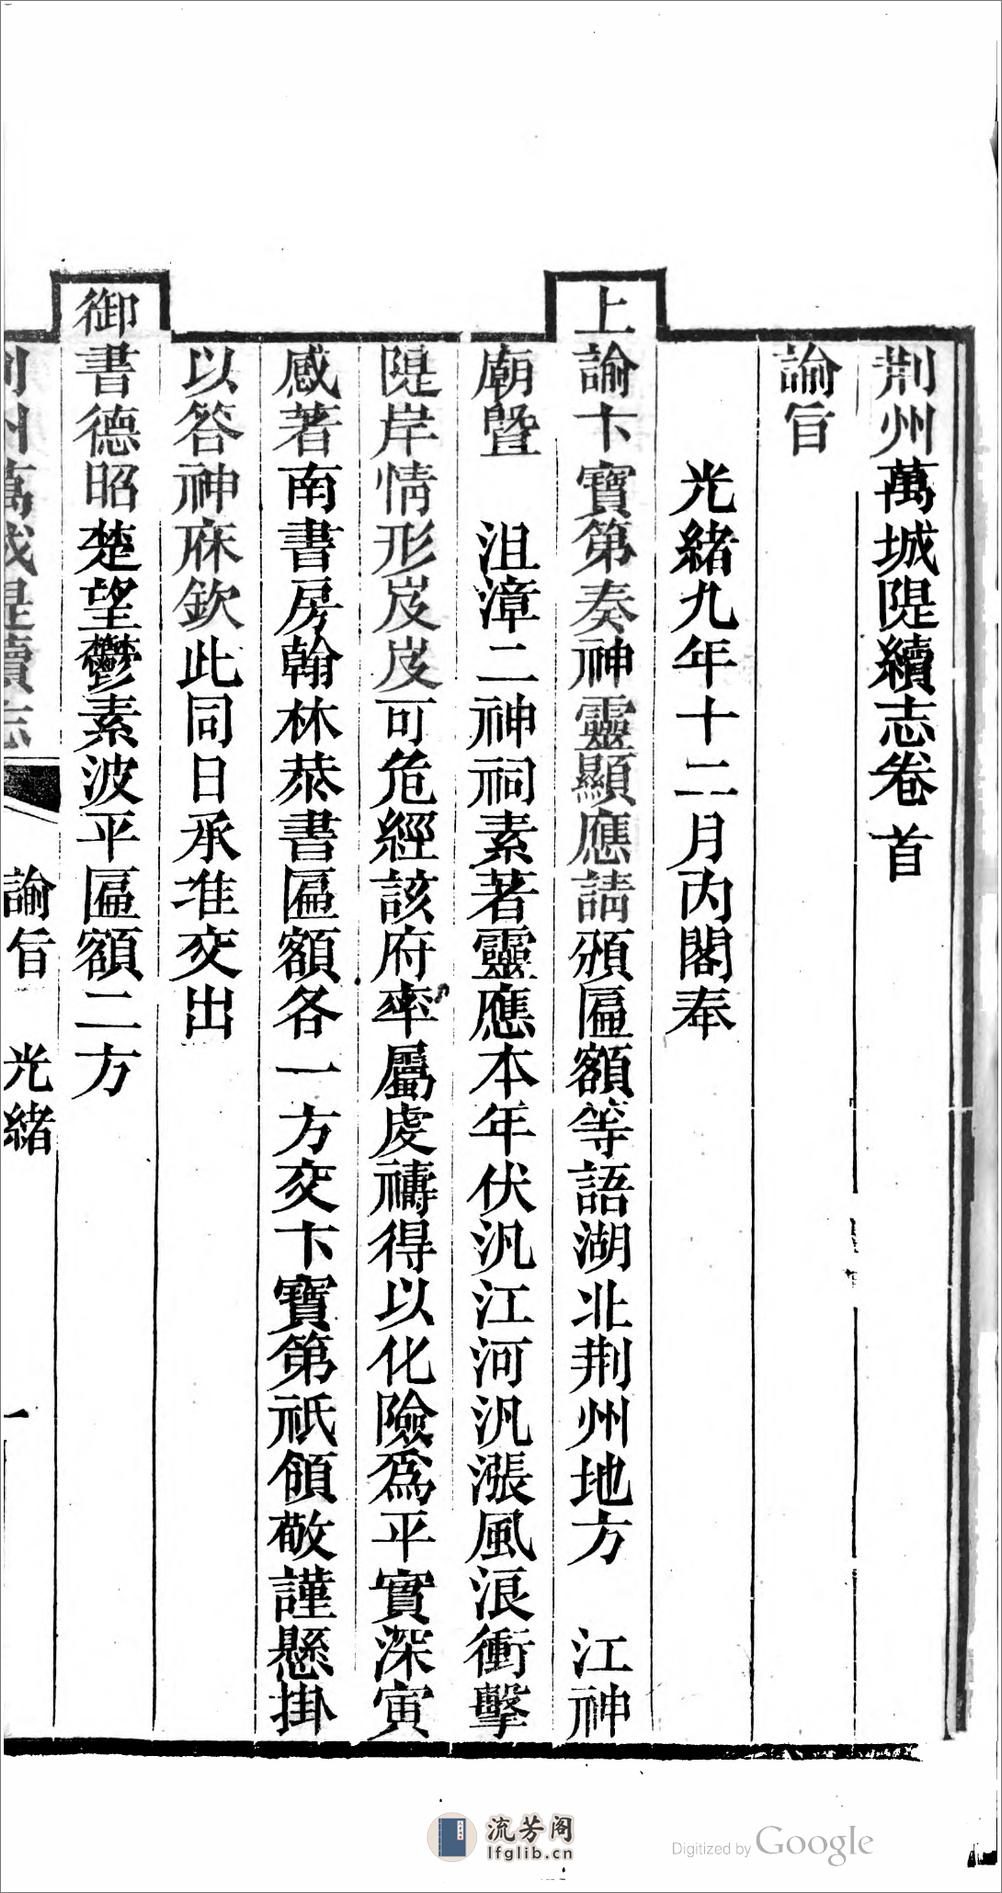 荆州萬城隄續志卷首
諭旨
光緒九年十二月內閣奉
上諭卞寶第奏神靈顯應請頒匾額等語湖北荆州地方　江神
廟暨　沮漳二神祠素著靈應本年伏汛江河汛漲風浪衝擊
隄岸情形岌岌可危經該府率屬虔禱得以化險爲平實深寅
感著南書房翰林恭書匾額各一方交卞寶第祇領敬謹懸掛
以答神庥欽此同日承准交出
御書德昭楚望鬱素波平匾額二方
荆州萬城隄續志
諭旨　光緒
一
流芳阁
lfglib.cn
Digitized by Google